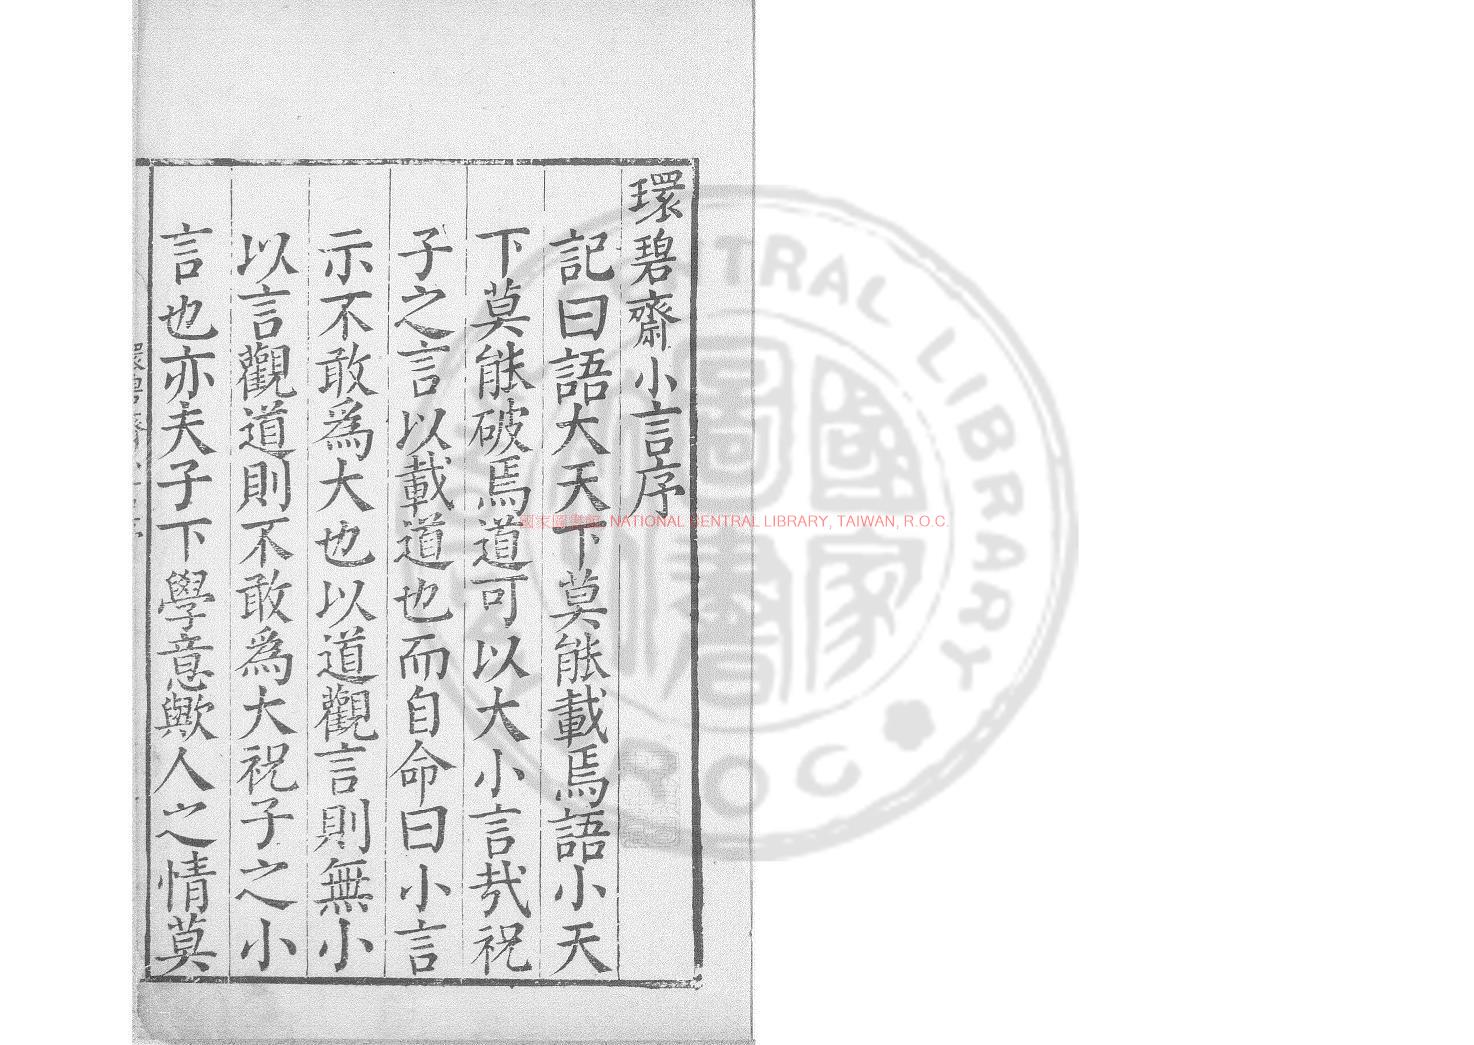 環碧齋小言序
記曰語大天下莫能載焉語小天
下莫能破焉道可以大小言哉祝
子之言以載道也而自命曰小言
示不敢為大也以道觀言則無小
以言觀道則不敢為大祝子之小
言也亦夫子下學意歟人之情莫
國家圖書館 NATIONAL CENTRAL LIBRARY, TAIWAN, R.O.C.
CENTRAL LIBRARY
R O C
國家圖書